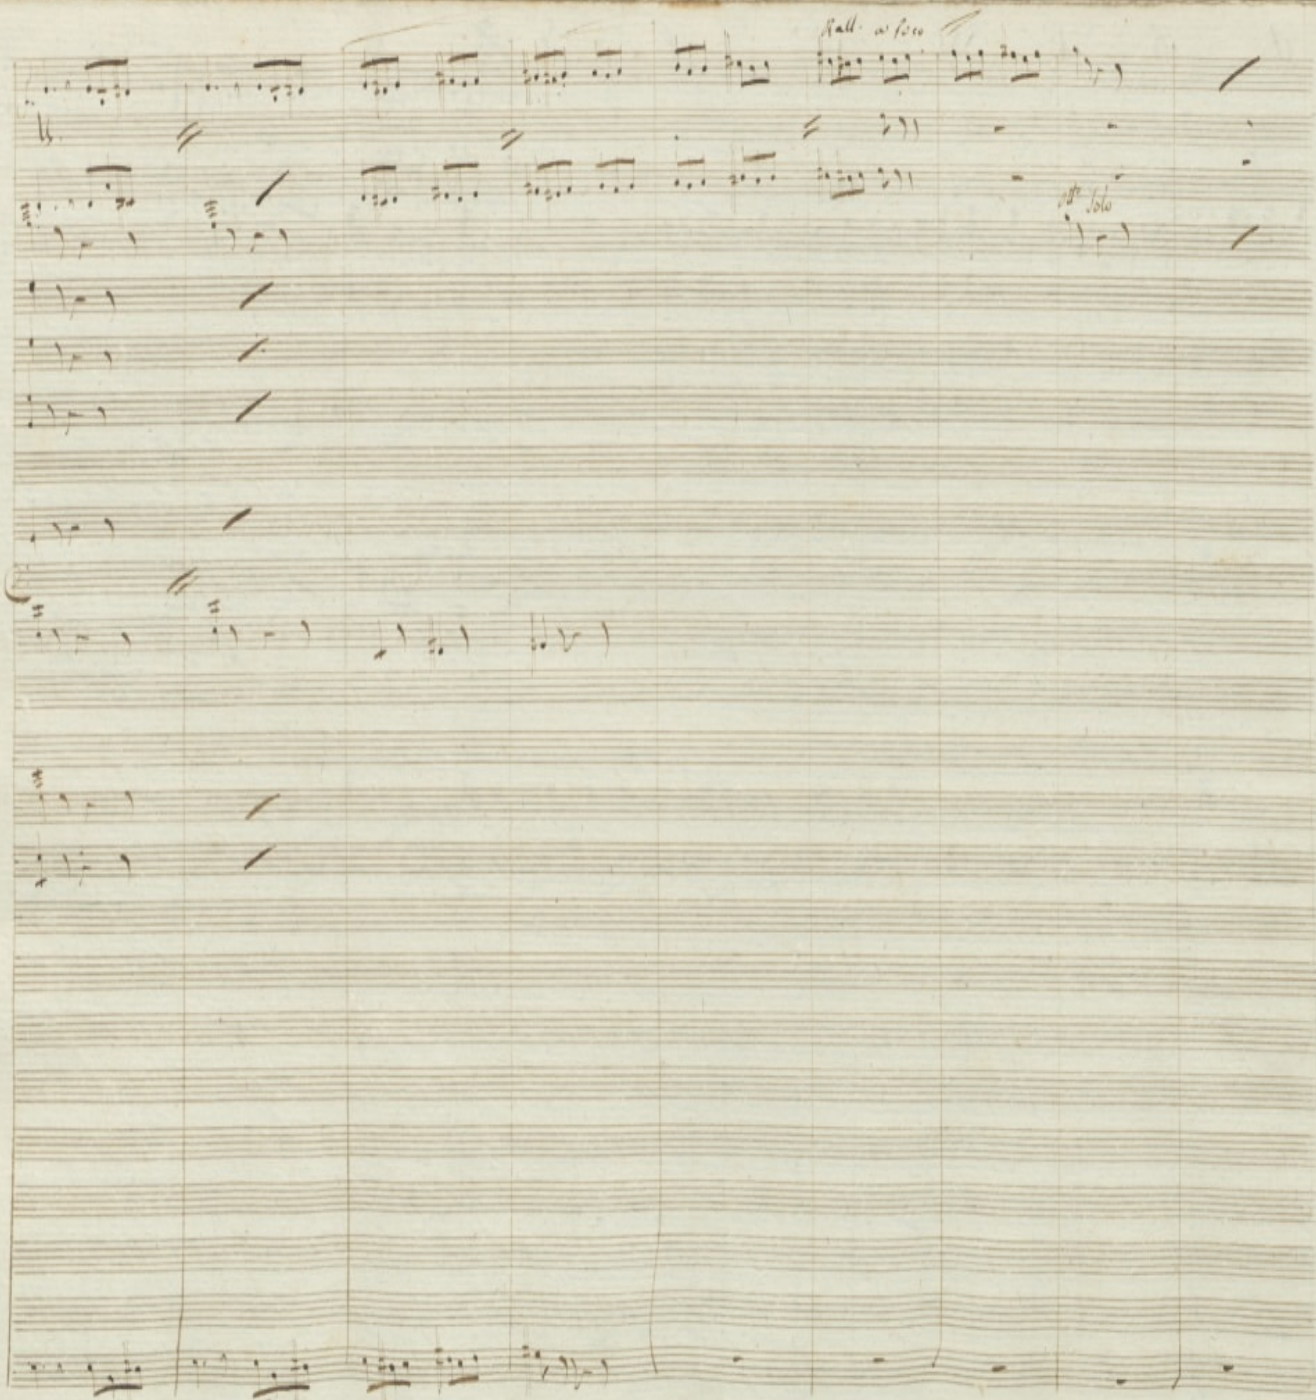 Rall. a poco
Solo